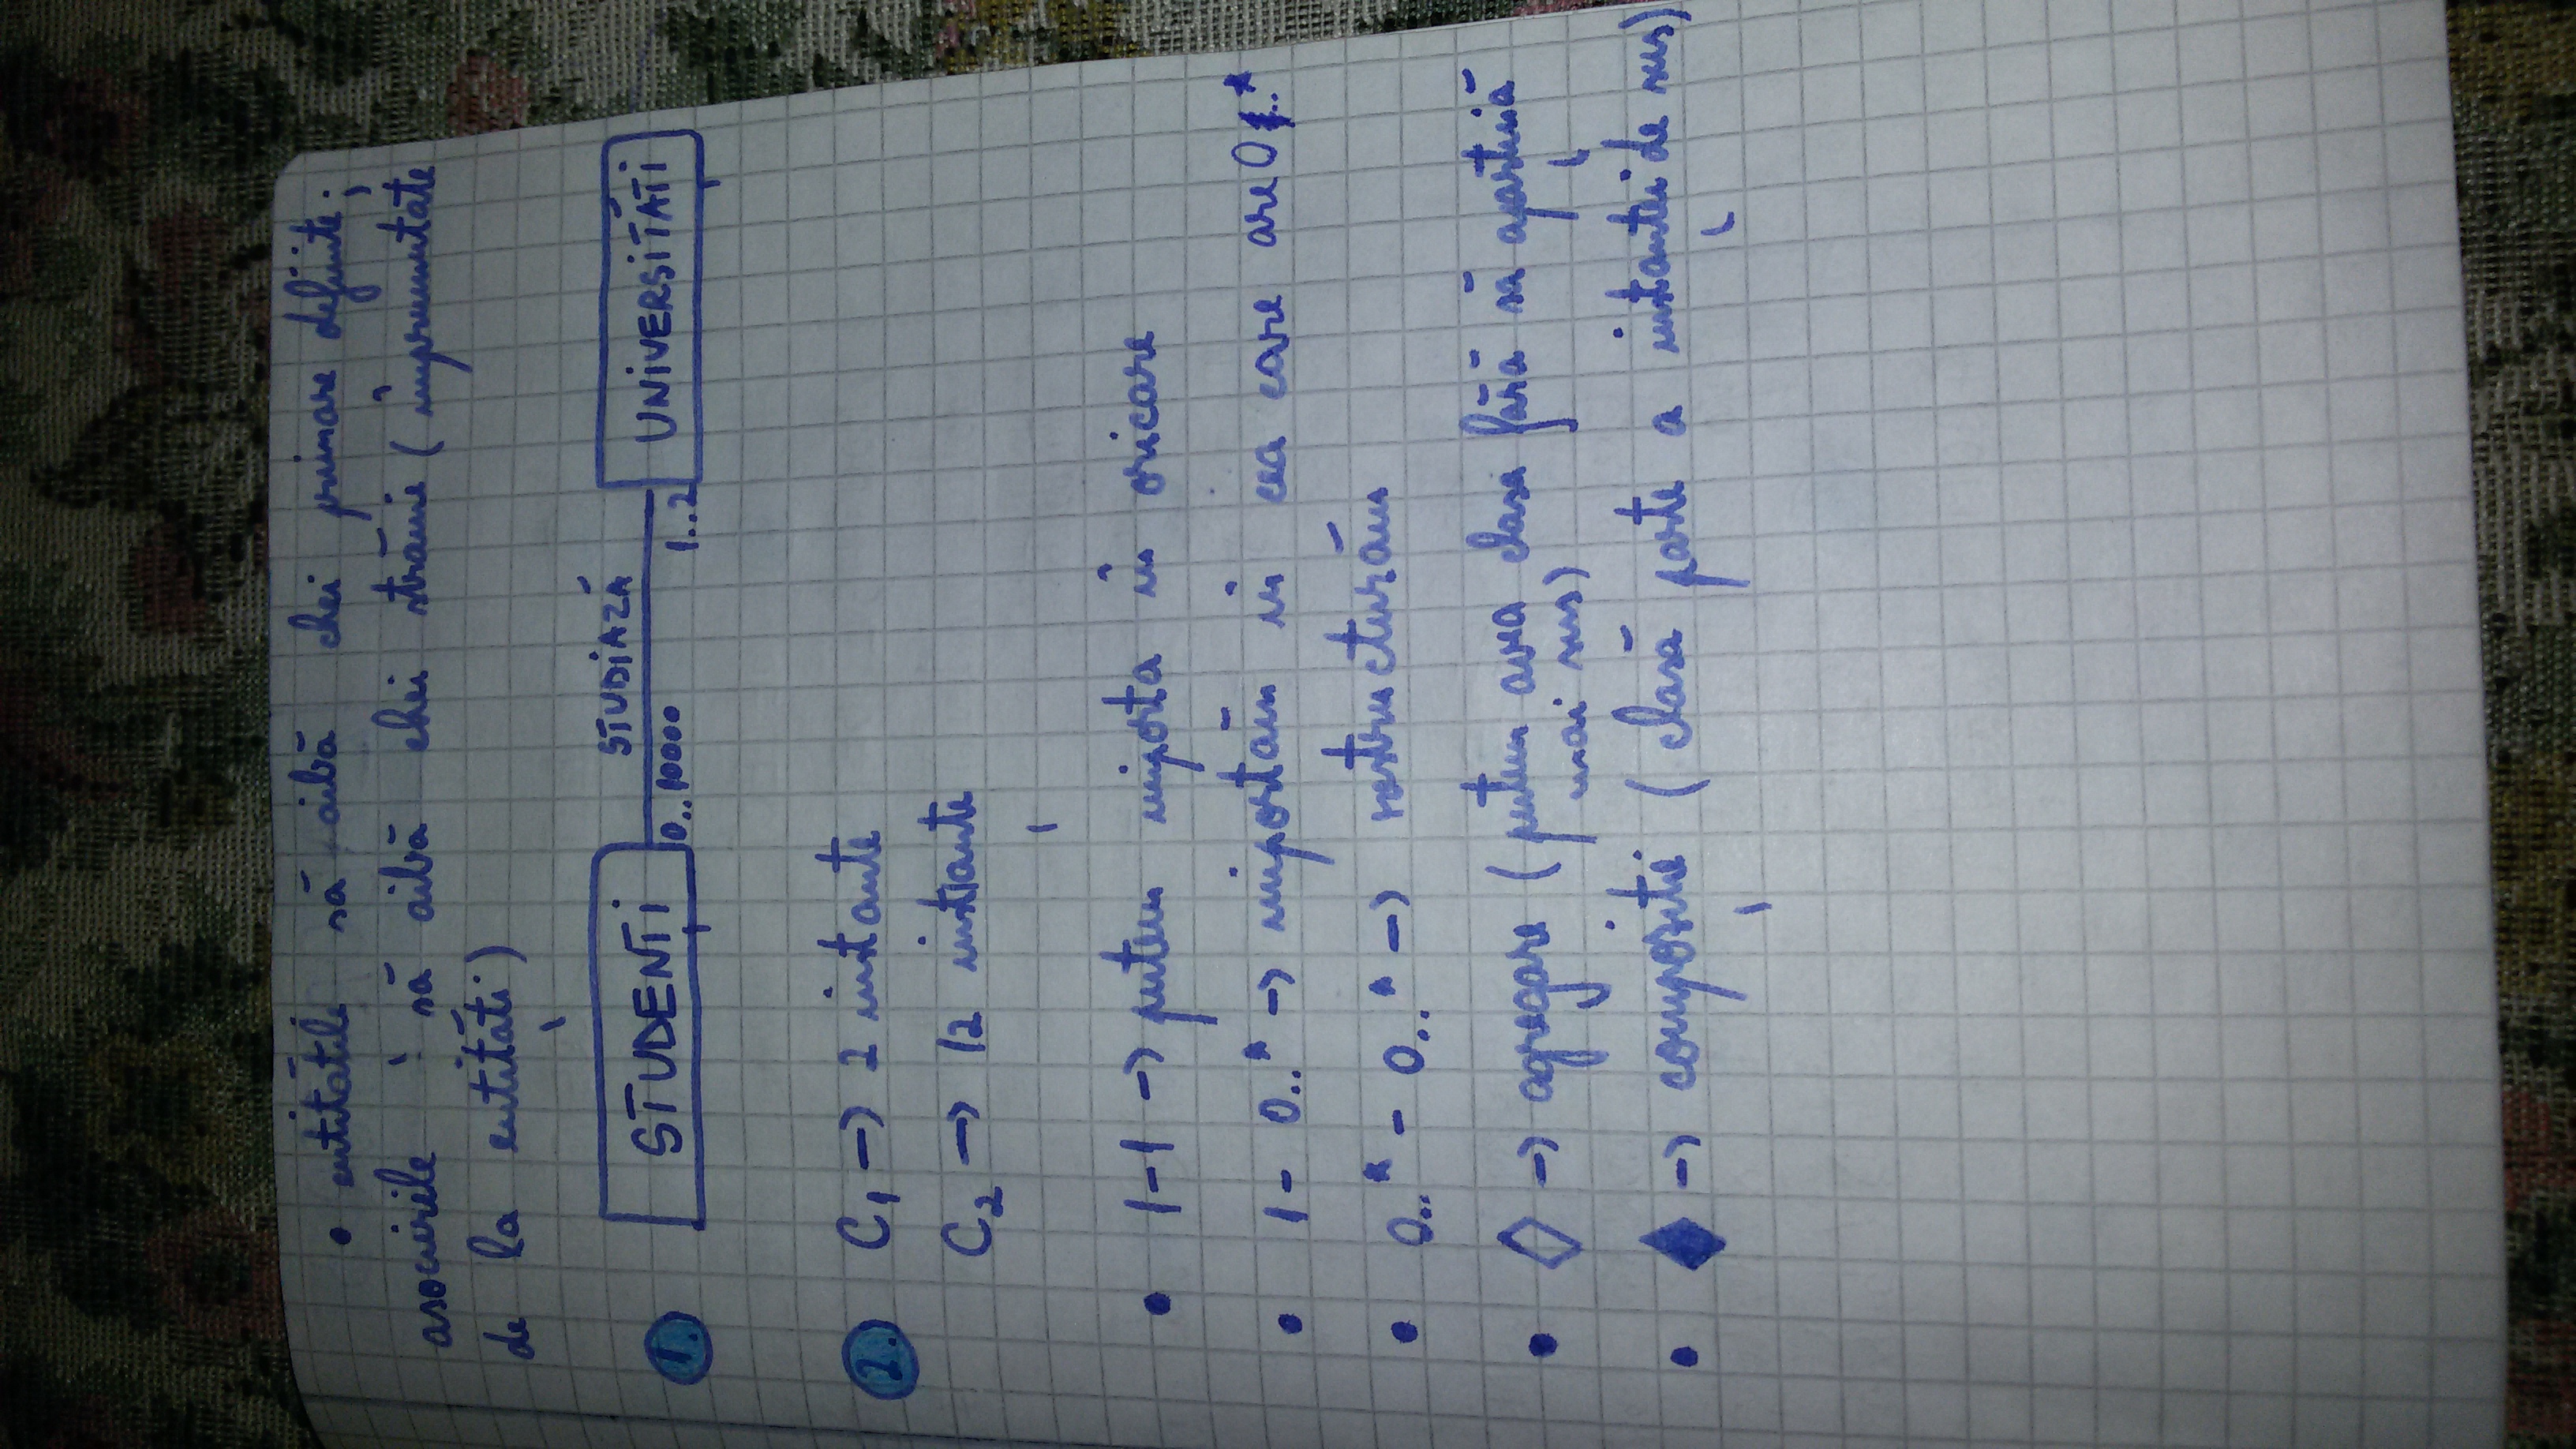 • entitățile să aibă chei primare definite;
asocierile să aibă chei străine (împrumutate
de la entități)
1. STUDENȚI 0..10000 STUDIAZĂ 1..2 UNIVERSITĂȚI
2. C1 -> 2 instante
C2 -> 12 instanțe
• 1-1 -> putem importa în oricare
• 1- 0..* -> importăm în cea care are 0..*
• 0..* - 0..* -> restructurăm
• ◇ -> agregare (putem avea clase fără să aparțină
mai sus)
• ◆ -> compoziție (clasă parte a instanței de sus)